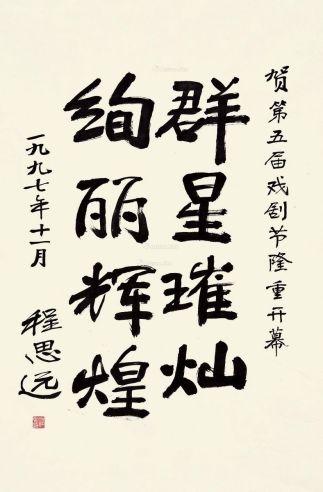 贺第五届戏剧节隆重开幕
群星璀灿
绚丽辉煌
一九九七年十一月
程思远